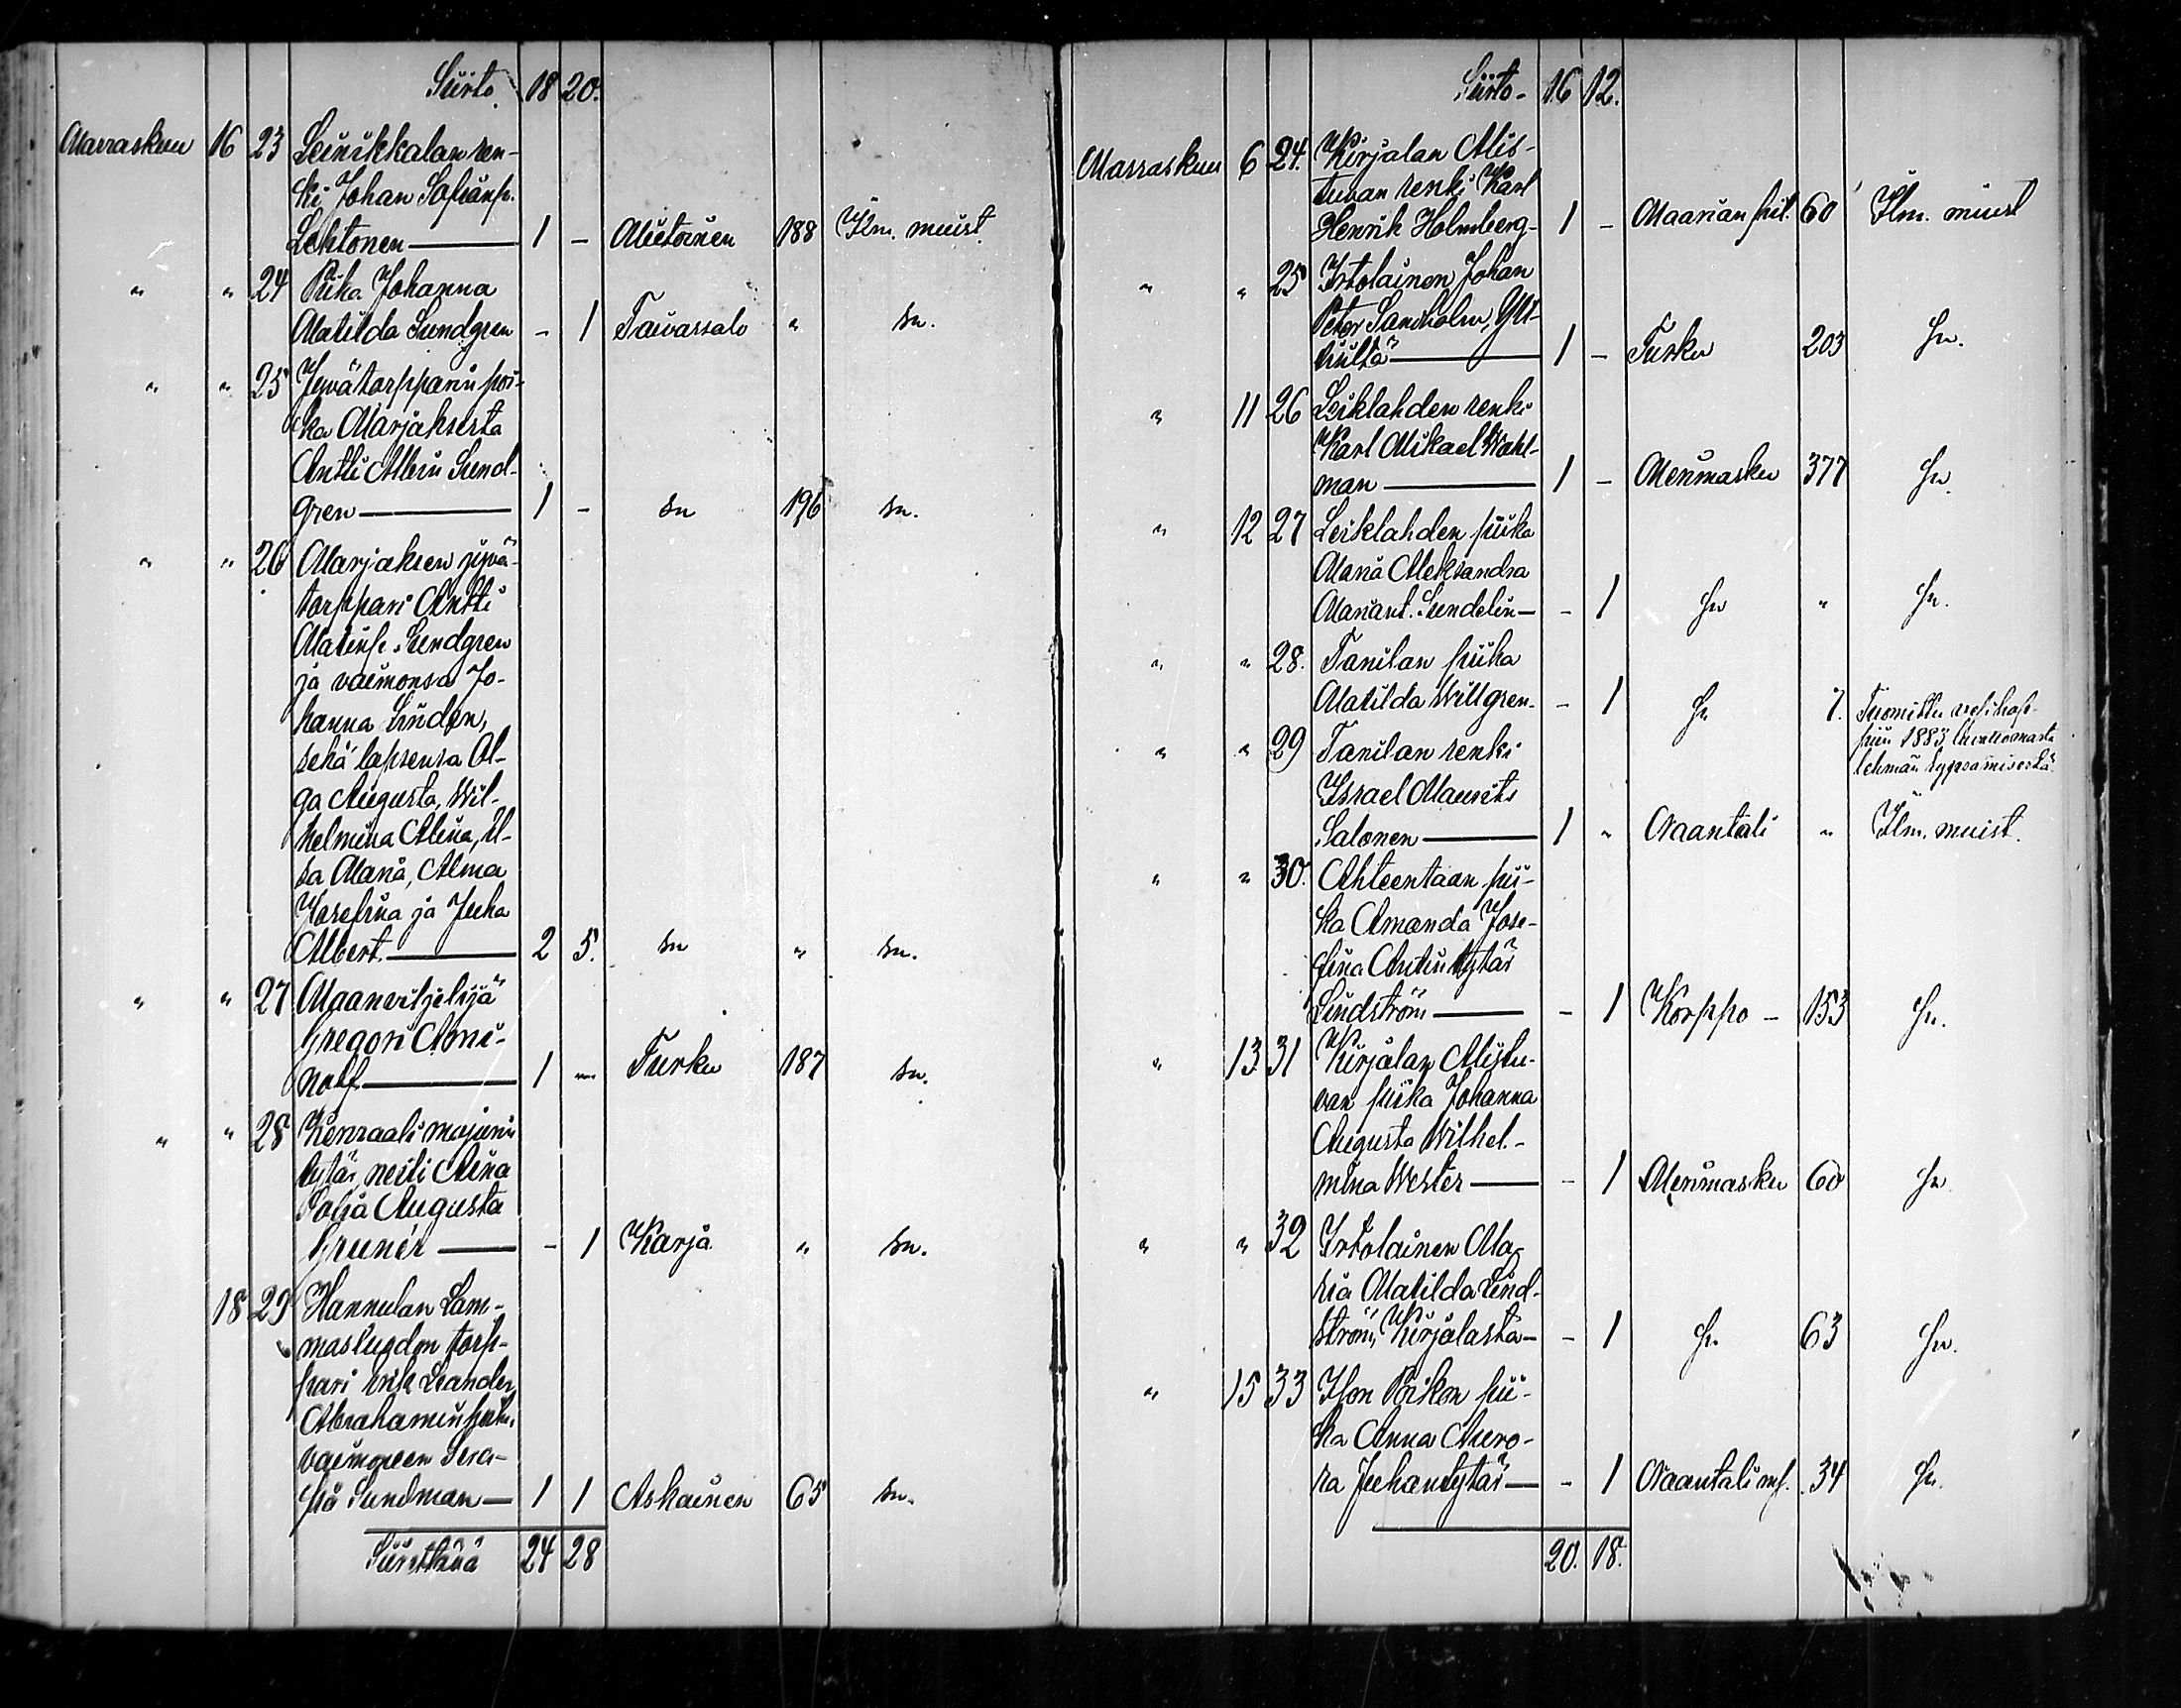 Siirto 18 20.
Marraskuu 16 23 Leinikkalan ren-
ki Johan Sofianp.
Lehtonen — 1 - Mietoinen 188 Ilm. muist.
" " 24 Piika Johanna
Matilda Sundgren - 1 Taivassalo " sn.
" " 25 Jyvätorpparin poi-
ka Marjaksesta
Antti Albin Sund-
gren — 1 - sn 196 sn.
" " 26 Marjaksen jyvä-
torppari Antti
Matinp. Sundgren
ja vaimonsa Jo-
hanna Linden,
sekä lapsensa Ol-
ga Augusta, Wil-
helmina Alina, El-
sa Maria, Alma
Josefina ja Juha
Albert. — 2 5. sn " sn.
" " 27 Maanviljelijä
Gregori
— 1 - Turku 187 sn.
" " 28 Kenraali majurin
tytär, neiti Aina
Sofia Augusta
Gruner — - 1 Karja " sn.
18 29 Hannulan Lam-
masluodon torp-
pari Erik Leander
Abrahaminpoika
vaimoneen Sera-
fia Sundman — 1 1 Askainen 65 sn.
Siirettävä 24 28
Siirto - 16 12.
Marraskuu 6 24. Kirjalan Alis-
tuvan renki Karl
Henrik Holmberg - 1 - Maarian pit. 60 Ilm. muist
" " 25 Irtolainen Johan
Peter Sandholm, Yli-
kültä — 1 - Turku 203 Sn.
" 11 26 Leiklahden renki
Karl Mikael Wahl-
man — 1 - Merimasku 377 Sn.
" 12 27 Leiklahden piika
Maria Aleksandra
Mariant. Sundelin — - 1 Sn " Sn.
" " 28. Tanilan piika
Matilda Willgren. - 1 Sn 7. Tuomittu
1883, luvattomasta
lehmän lypsämisestä.
" " 29 Tanilan renki
Israel Maurits
Salonen — 1 " Naantali " Ilm. muist.
" " 30. Ahteentaan pii-
ka Amanda Jose-
fina Antintytär
Lindström — - 1 Korppo - 153 Sn.
" 13 31 Kirjalan Alistu-
van piika Johanna
Augusta Wilhel-
mina Wester — - 1 Merimasku 60 Sn
" " 32 Irtolainen Ma-
ria Matilda Lind-
ström, Kirjalasta — - 1 Sn. 63 Sn.
" 15 33 Ison Pirkon pii-
ka Anna Auro-
ra Juhantytär — - 1 Naantali ms. 34 Sn.
20. 18.